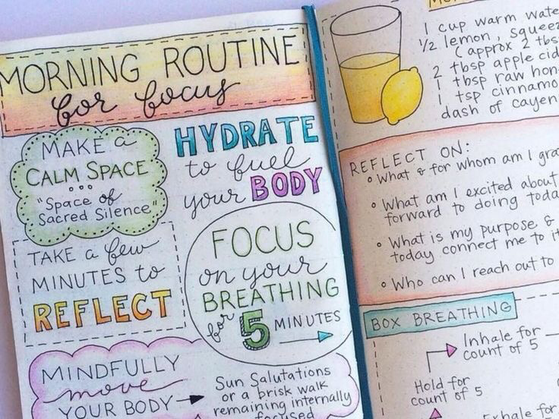 MORNING ROUTINE
for focus
MAKE a
CALM SPACE
"Space of
Sacred Silence"
HYDRATE
to fuel
your BODY
TAKE a few
MINUTES to
REFLECT
FOCUS
on your
BREATHING
for 5 MINUTES
MINDFULLY
move
YOUR BODY
Sun Salutations
or a brisk walk
remaining internally
focused
1 cup warm
1/2 lemon,
(approx 2
2 tbsp apple
1 tbsp raw
1 tsp
dash of
REFLECT ON:
• What & for whom am I
• What am I excited about
forward to doing
• What is my purpose,
today connect me to
• Who can I reach out to
BOX BREATHING
Inhale for
count of 5
Hold for
count of 5